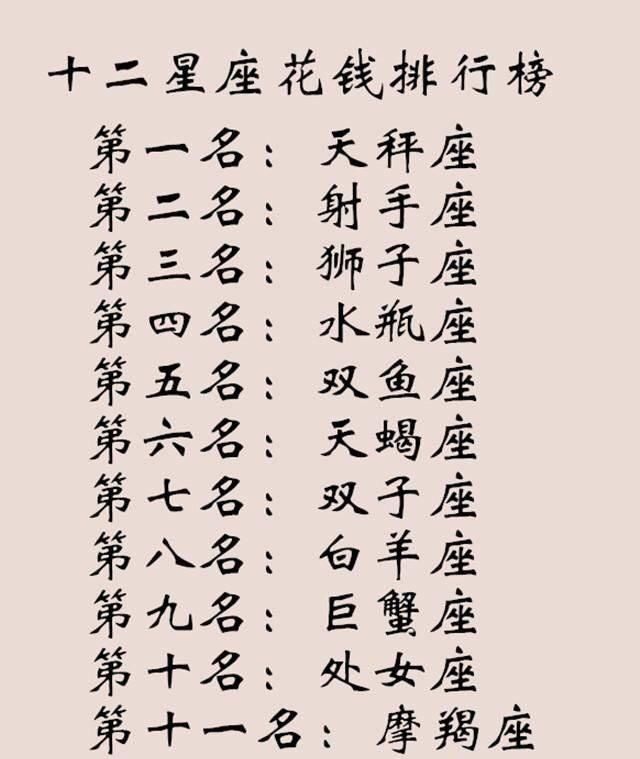 十二星座花钱排行榜
第一名：天秤座
第二名：射手座
第三名：狮子座
第四名：水瓶座
第五名：双鱼座
第六名：天蝎座
第七名：双子座
第八名：白羊座
第九名：巨蟹座
第十名：处女座
第十一名：摩羯座